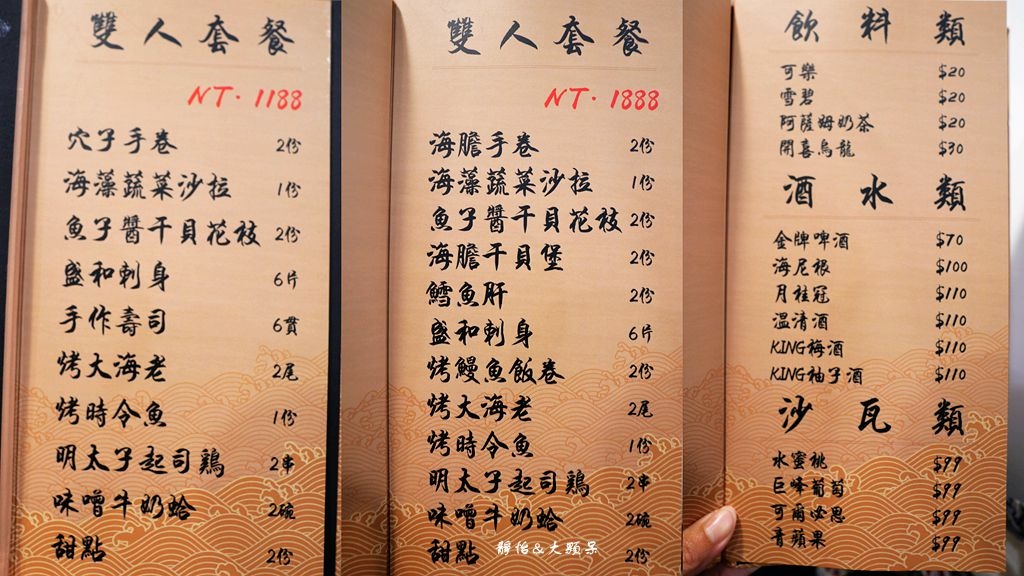 雙人套餐
NT. 1188
穴子手卷 2份
海藻蔬菜沙拉 1份
魚子醬干貝花枝 2份
盛和刺身 6片
手作壽司 6貫
烤大海老 2尾
烤時令魚 1份
明太子起司鶏 2串
味噌牛奶蛤 2碗
甜點 2份
雙人套餐
NT. 1888
海膽手卷 2份
海藻蔬菜沙拉 1份
魚子醬干貝花枝 2份
海膽干貝堡 2份
鱈魚肝 2份
盛和刺身 6片
烤鰻魚飯卷 2份
烤大海老 2尾
烤時令魚 1份
明太子起司鶏 2串
味噌牛奶蛤 2碗
甜點 2份
靜怡&大顆呆
飲料類
可樂 $20
雪碧 $20
阿薩姆奶茶 $20
開喜烏龍 $30
酒水類
金牌啤酒 $70
海尼根 $100
月桂冠 $110
溫清酒 $110
KING梅酒 $110
KING柚子酒 $110
沙瓦類
水蜜桃 $99
巨峰葡萄 $99
可爾必思 $99
青蘋果 $99